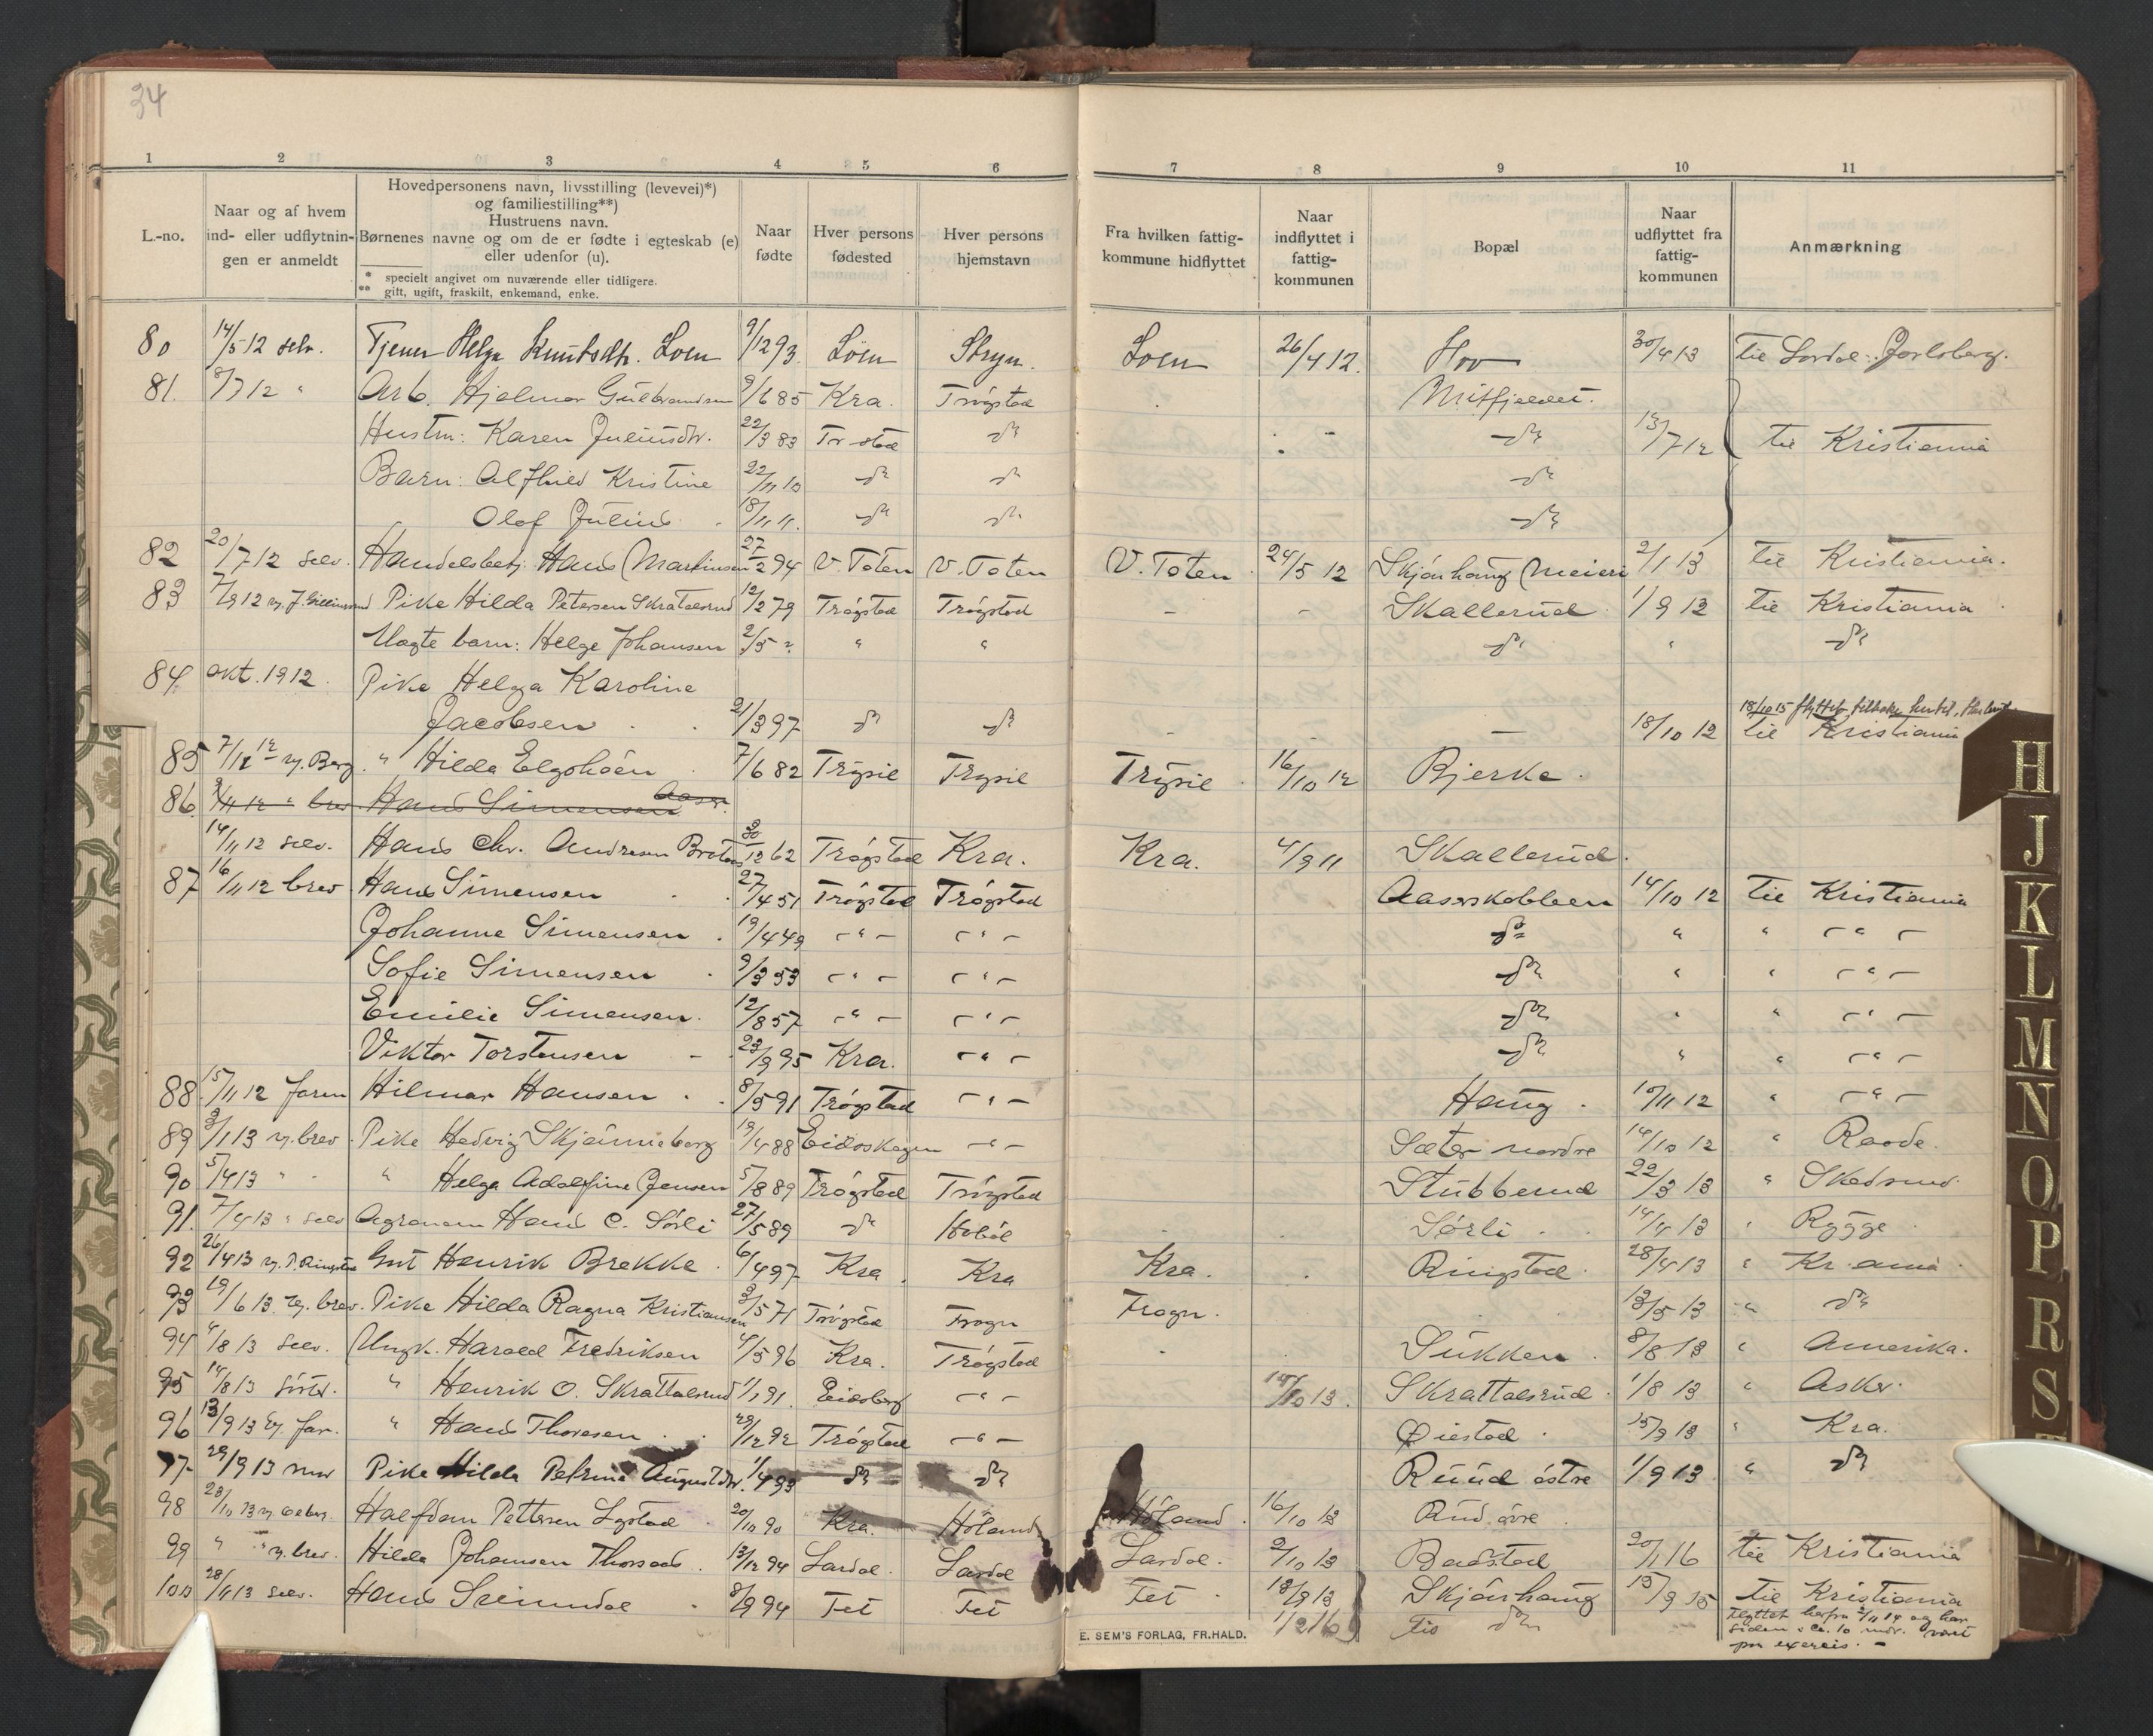 34
1 2 3 4 5 6 7 8 9 10 11
L.-no.
Naar og af hvem
ind- eller udflytnin-
gen er anmeldt
Hovedpersonens navn, livsstilling (levevei)*)
og familiestilling**)
Hustruens navn.
Børnenes navne og om de er fødte i egteskab (e)
eller udenfor (u).
* specielt angivet om nuværende eller tidligere.
** gift, ugift, fraskilt, enkemand, enke.
Naar
fødte
Hver persons
fødested
Hver persons
hjemstavn
Fra hvilken fattig-
kommune hidflyttet
Naar
indflyttet i
fattig-
kommunen
Bopæl
Naar
udflyttet fra
fattig-
kommunen
Anmærkning
80 14/5 12 selv. Tjener Helga Knutsdtr. Loen 9/12 93 Loen Stryn. Loen 26/4 12. Hov 30/4 13 til Lardal: Jarlsberg.
81. 9/7 12 " Arb. Hjalmar Gulbrandsen 9/6 85 Kra. Trøgstad Mitfjeldet.
Hustru: Karen Juliusdtr. 22/3 83 Tr-stad do - do 13/7 12 til Kristiania
Barn: Alfhild Kristine 22/11 10 do do do
Olaf Julius 18/11 11. do do do
82 20/7 12 selv. Handelsbetj. Hans Martinsen 27/2 94 V Toten V. Toten V. Toten 24/5 12 Skjønhaug Meieri 2/1 13 til Kristiania.
83 7/9 12 v. Pike Hilda Petersen Skratalsrud 12/2 79 Trøgstad Trøgstad - - Skallerud 1/9 12 til Kristiania
Uægte barn: Helge Johansen 2/5 " " do " do
84. okt. 1912. Pike Helga Karoline
18/10 15 flyttet tilbake
Jacobsen 21/3 97 do do - - - 18/10 12 til Kristiania
85 7/12 12 v. Berg " Hilda Elgshøen 7/6 82 Trysil Trysil Trysil 16/10 12 Bjerke
86. 9/11 12 " brev Hans Simensen Aaser
14/11 12 selv. Hans Chr. Andresen Braten 30/12 62 Trøgstad Kra. Kra. 4/9 11 Skallerud.
87 16/11 12 brev Hans Simensen 27/4 51 Trøgstad Trøgstad Aaserskobben 14/10 12 til Kristiania
Johanne Simensen 19/4 49 - " - - " - do " " - " -
Sofie Simensen 9/3 53 - " - - " - do " " - " -
Emilie Simensen. 12/8 57 - " - - " - do " " - " -
Viktor Torstensen 23/9 95 Kra. - " - do " " - " -
88 15/11 12 faren Hilmar Hansen 8/5 91 Trøgstad - " - Haug 10/11 12 " - " -
89 3/1 13 v. brev Pike Hedvig Skjønneberg 19/4 88 Eidsskogen - " - Sæter nordre 14/10 12 " Raade.
90 5/4 13 " " Helga Adolfine Jensen 5/8 89 Trøgstad Trøgstad Stubberud 22/3 13 " Skedsmo.
91. 7/4 13 " selv Agronom Hans C. Sørli 27/5 89 do Hobøl Sørli 14/4 13 " Rygge
92 26/4 13 v. Gut Henrik Brekke 6/4 97 Kra. Kra Kra. Ringstad 28/4 13 " Kr.ania
93 19/6 13. v. brev. Pike Hilda Ragna Kristiansen 3/5 71 Trøgstad Frogn Frogn. 13/5 13 " do
94 4/8 13 selv. Ungk. Harald Fredriksen 4/5 96 Kra. Trøgstad Sukken 8/8 13 " Amerika.
95 14/8 13 søster. " Henrik O. Skrattalsrud 1/1 91. Eidsberg - " - 14/10 13. Skrattalsrud 1/8 13 " Asker.
96 13/9 13 v. far. " Hans Thoresen 29/12 92 Trøgstad - " - Øiestad 15/9 13 " Kra.
97 29/9 13 mor Pike Hilda Petrine Augustdtr. 1/4 93 do do Ruud østre 1/9 13 " do
98 23/10 13 v. Halfdan Pettersen 20/10 90 Kra. Høland Høland 16/10 13 Rud øvre
99 " " v. brev. Hilda Johansen 13/12 94 Lardal. Lardal Lardal. 2/10 13 Badstad 20/1 16 til Kristiania
100 28/11 13 selv. Hans 8/9 94 Fet Fet Fet 18/9 13 Skjønhaug 15/9 15 til Kristiania
1/2 16 do
flyttet herfra 2/11 14 og har
siden ca. 10 mdr. været
paa exercis. -
E. SEM'S FORLAG, FR.HALD.
H
J
K
L
M
N
O
P
R
S